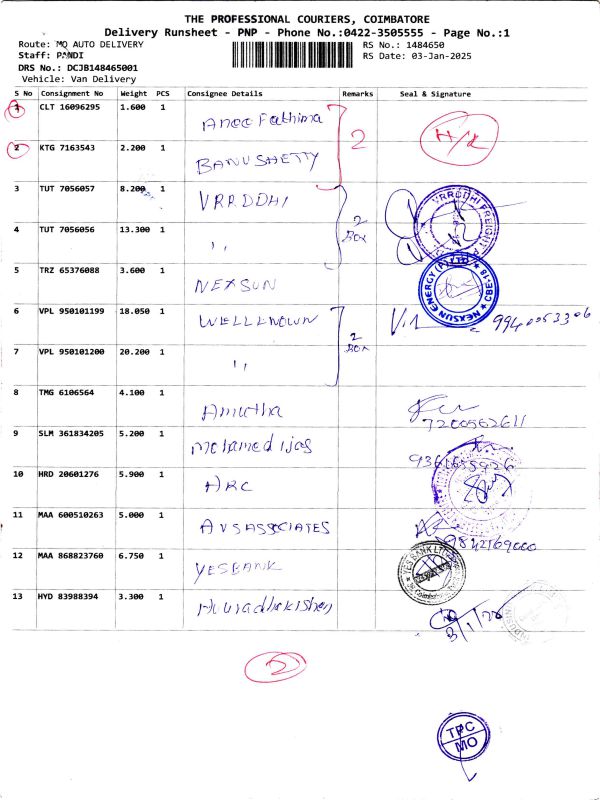 THE PROFESSIONAL COURIERS, COIMBATORE
Delivery Runsheet - PNP - Phone No.:0422-3505555 - Page No.:1
Route: MQ AUTO DELIVERY
RS No.: 1484650
Staff: PANDI
RS Date: 03-Jan-2025
DRS No.: DCJB148465001
Vehicle: Van Delivery
S No Consignment No Weight PCS Consignee Details Remarks Seal & Signature
1 CLT 16096295 1.600 1 Anee Fathima
2 H/R
2 KTG 7163543 2.200 1 BANUSHETTY
3 TUT 7056057 8.200 1 VRRDDHI
2 BOX
VRRDDHI FREIGHT
4 TUT 7056056 13.300 1 ,,
5 TRZ 65376088 3.600 1 NEXSUN
NEXSUN ENERGY (P) LTD CBE-18
6 VPL 950101199 18.050 1 WELLKNOWN
9940053306
2 BOX
7 VPL 950101200 20.200 1 ,,
8 TMG 6106564 4.100 1 Amutha
7200562611
9 SLM 361834205 5.200 1 Mohamed ijas
10 HRD 20601276 5.900 1 ARC
11 MAA 600510263 5.000 1 AVS ASSOCIATES
9842169000
12 MAA 868823760 6.750 1 YESBANK
YES BANK LTD
13 HYD 83988394 3.300 1
3/1/
2
TPC
MO